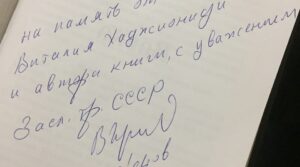 на память от
Виталия Хаджиониди
и автора книги, с уважением
Засл. тр. СССР